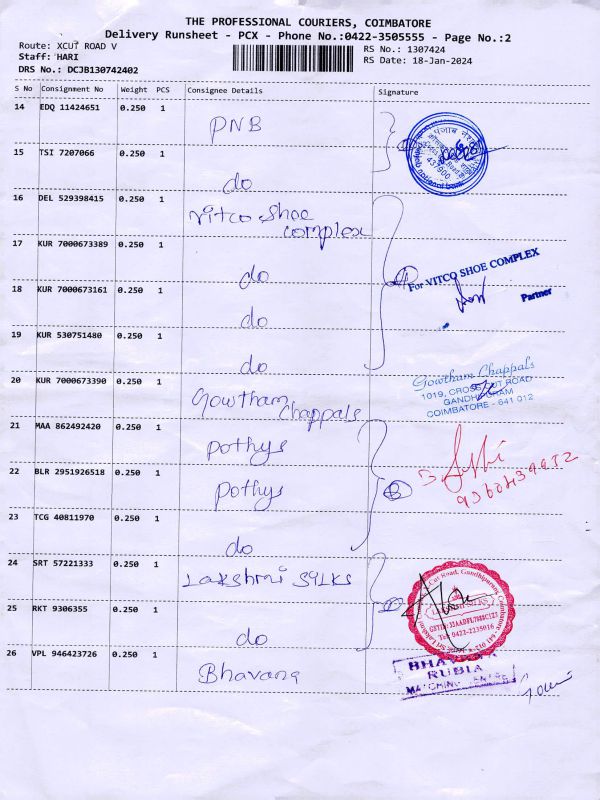 THE PROFESSIONAL COURIERS, COIMBATORE
Delivery Runsheet - PCX - Phone No.:0422-3505555 - Page No.:2
Route: XCUT ROAD V
RS No.: 1307424
Staff: HARI
RS Date: 18-Jan-2024
DRS No.: DCJB130742402
S No Consignment No Weight PCS Consignee Details Signature
14 EDQ 11424651 0.250 1 PNB
15 TSI 7207066 0.250 1 do
16 DEL 529398415 0.250 1 Vitco Shoe Complex
17 KUR 7000673389 0.250 1 do
For VITCO SHOE COMPLEX
Partner
18 KUR 7000673161 0.250 1 do
19 KUR 530751480 0.250 1 do
20 KUR 7000673390 0.250 1 Gowtham Chappals
Gowtham Chappals
1019, CROSS CUT ROAD
GANDHIPURAM
COIMBATORE - 641 012
21 MAA 862492420 0.250 1 Pothys
22 BLR 2951926518 0.250 1 Pothys
23 TCG 40811970 0.250 1 do
24 SRT 57221333 0.250 1 Lakshmi Sylks
25 RKT 9306355 0.250 1 do
Tel: 0422-2235016
26 VPL 946423726 0.250 1 Bhavana
RUBIA